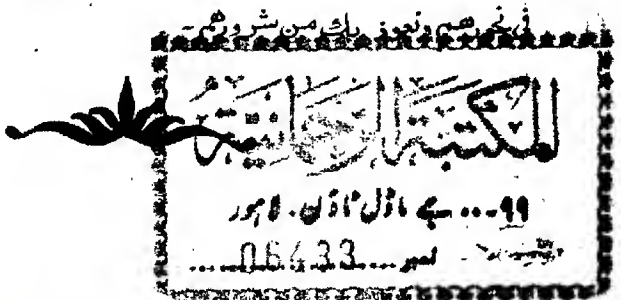 في نحرهم ونعوذ بك من شرورهم۔
المكتبة الرحمانية
۹۹... جے ماڈل ٹاؤن۔ لاہور
نمبر ....06433.....